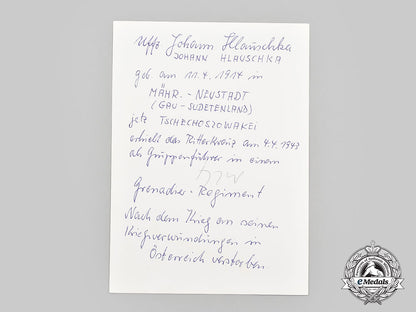 Uffz Johann Hlauschka
JOHANN HLAUSCHKA
geb am 11.4.1914 in
MÄHR. - NEUSTADT
(GAU - SUDETENLAND)
jetz TSCHECHOSZOWAKEI
erhielt das Ritterkreuz am 4.4.1943
als Gruppenführer in einem
Grenadier - Regiment
Nach dem Krieg an seinen
Kriegverwundungen in
Österreich verstorben
eMedals